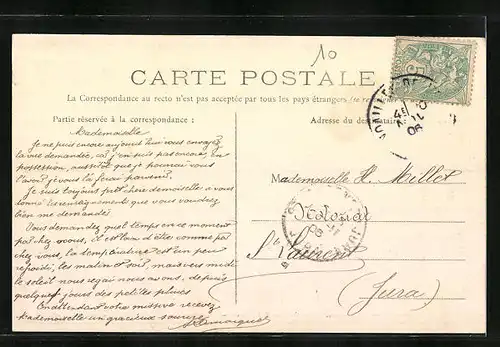 10
CARTE POSTALE
La Correspondance au recto n'est pas acceptée par tous les pays étrangers (se
Partie réservée à la correspondance :
Adresse du destinataire
Mademoiselle
Je ne puis encore aujourd'hui vous envoyez
la vue demandée, car j'en suis pas encore en
possession, aussitôt que je pourrai vous
l'avoir je vous la ferai parvenir.
Je suis toujours prêt chère demoiselle a vous
donné les renseignement que vous voudrez
bien me demandé.
Vous demandez quel temps en ce moment
par chez vous, il est loin d'être comme par
chez vous, la température est un peu
refroidi, les matin et soir, mais vers midi
le soleil nous regai nous avons, depuis
quelques jours des petites pluies
En attendant votre missive recevez
Mademoiselle un gracieux sourire
Mademoiselle H. Millet
St Laurent
(Jura)